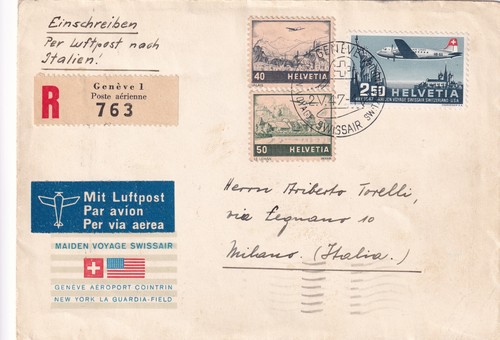 Einschreiben
Per Luftpost nach
Italien!
R
Genève 1
Poste aérienne
763
40 HELVETIA
50 HELVETIA
2.50 HELVETIA
SWISSAIR
Mit Luftpost
Par avion
Per via aerea
MAIDEN VOYAGE SWISSAIR
GENÈVE AEROPORT COINTRIN
NEW YORK LA GUARDIA-FIELD
Herrn Ariberto Torelli,
via Legnano 10
Milano (Italia.)